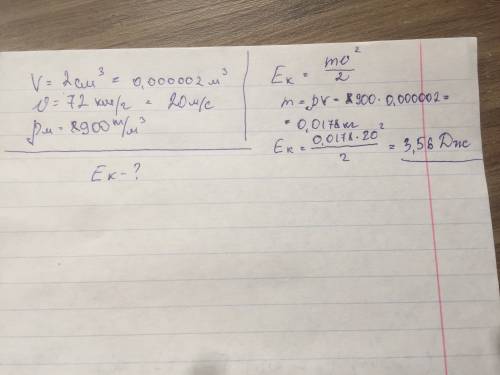 V = 2 см³ = 0,000002 м³
υ = 72 км/г = 20 м/с
ρм = 8900 m/м³
Eк - ?
Eк = mυ²/2
m = ρv = 8900 · 0,000002 =
= 0,0178 кг
Eк = 0,0178 · 20²/2 = 3,56 Дж